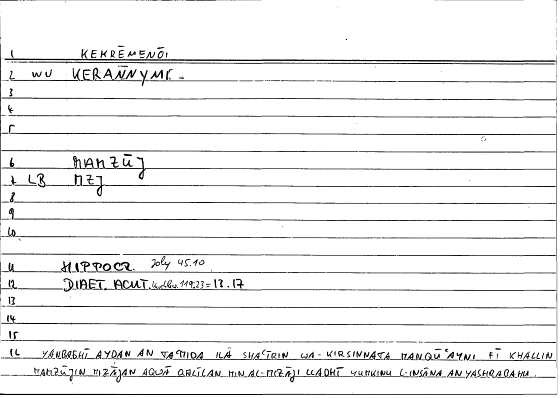 1 KEKRĒMENOI
2 WU KERANNYMI.
3
4
5
6 MAMZŪJ
7 LB MZJ
8
9
10
11 HIPPOCR. Joly 45.10
12 DIAET. ACUT. 119,23 = 13.17
13
14
15
16 YANBAGHĪ AYḌAN AN TAʿMIDA ILĀ SHAʿĪRIN WA-KIRSINNATA MANQŪʿAYNI FĪ KHALLIN
MAMZŪJIN MIZĀJAN AQWĀ QALĪLAN MIN AL-MIZĀJI LLADHĪ YUMKINU L-INSĀNA AN YASHRABAHU.